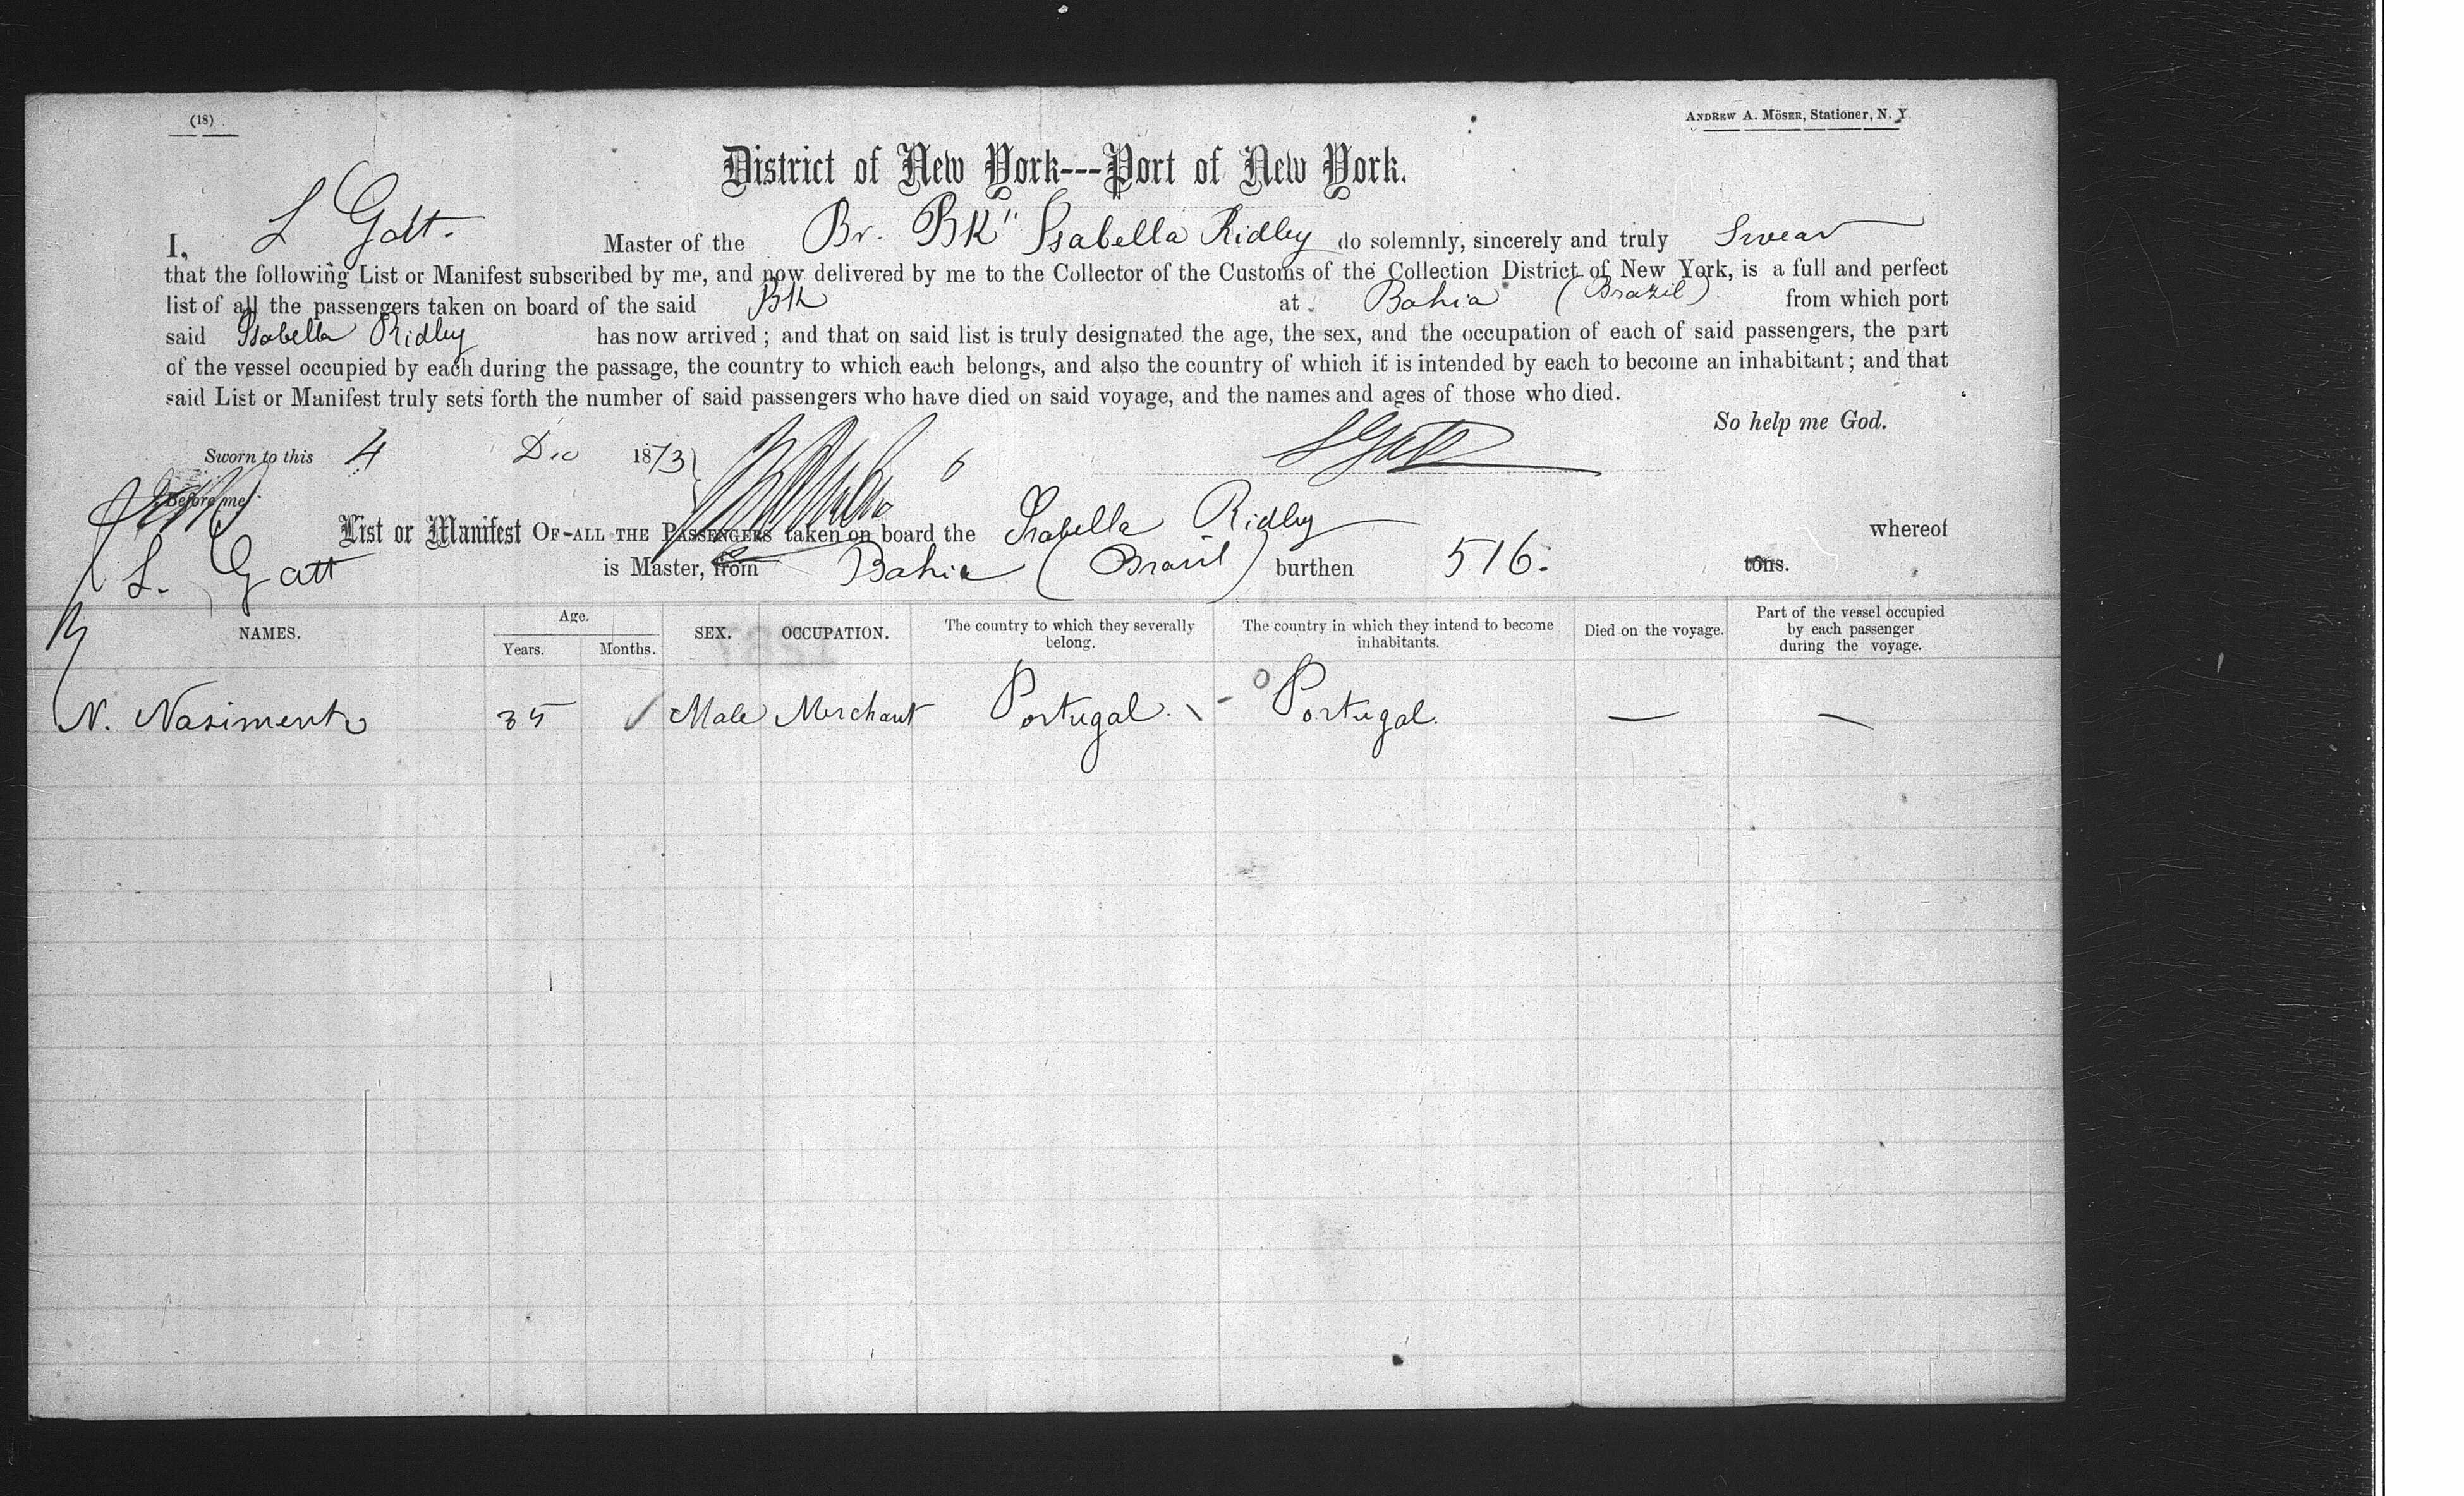 (18)
ANDREW A. MÖSER, Stationer, N. Y.
District of New York---Port of New York.
I, L Gatt. Master of the Br. Bk" Isabella Ridley do solemnly, sincerely and truly Swear
that the following List or Manifest subscribed by me, and now delivered by me to the Collector of the Customs of the Collection District of New York, is a full and perfect
list of all the passengers taken on board of the said Bk at Bahia (Brazil) from which port
said Isabella Ridley has now arrived; and that on said list is truly designated the age, the sex, and the occupation of each of said passengers, the part
of the vessel occupied by each during the passage, the country to which each belongs, and also the country of which it is intended by each to become an inhabitant; and that
said List or Manifest truly sets forth the number of said passengers who have died on said voyage, and the names and ages of those who died.
So help me God.
Sworn to this 4 Dec 1873 L Gatt
Before me
List or Manifest OF ALL THE PASSENGERS taken on board the Isabella Ridley whereof
L. Gatt is Master, from Bahia (Brasil) burthen 516. tons.
NAMES. Age. Years. Months. SEX. OCCUPATION. The country to which they severally belong. The country in which they intend to become inhabitants. Died on the voyage. Part of the vessel occupied by each passenger during the voyage.
N. Nasimento 35 ✓ Male Merchant Portugal. \ - 0 Portugal. — —